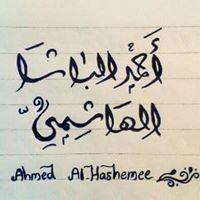 أَحْمَد البَاشَا
الهَاشِمِيُّ
Ahmed Al-Hashemee